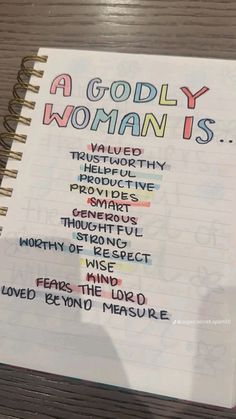 A GODLY
WOMAN IS...
VALUED
TRUSTWORTHY
HELPFUL
PRODUCTIVE
PROVIDES
SMART
GENEROUS
THOUGHTFUL
STRONG
WORTHY OF RESPECT
WISE
KIND
FEARS THE LORD
LOVED BEYOND MEASURE